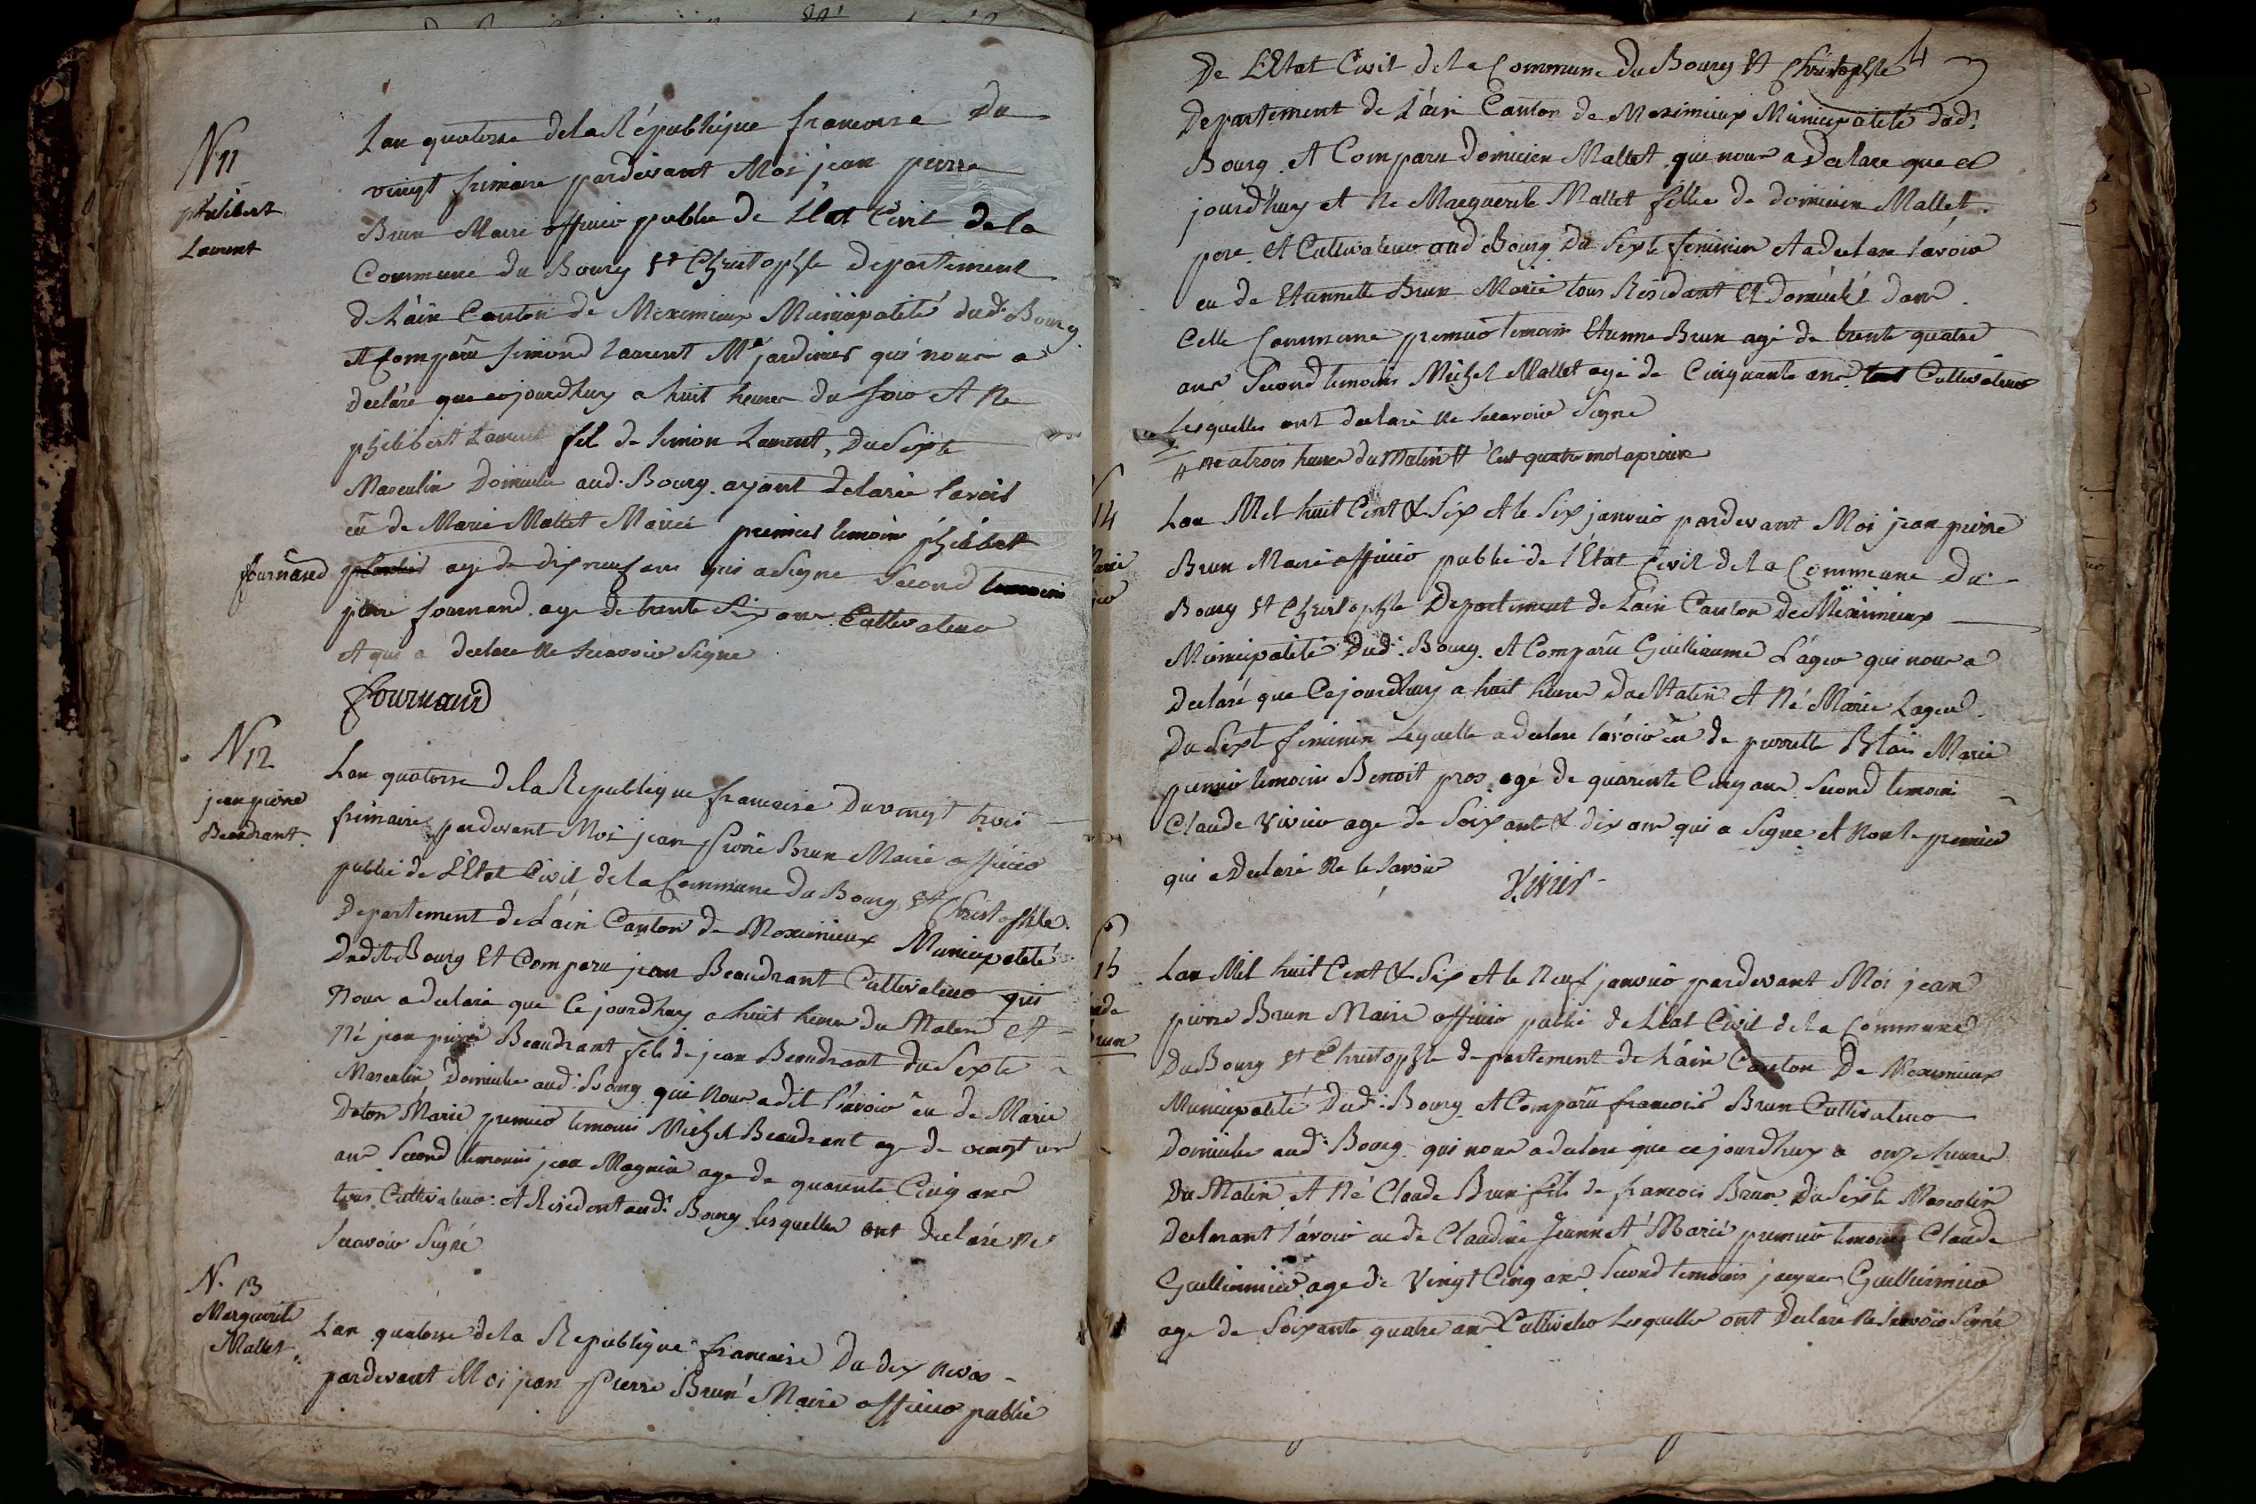 N 11
philibert
Laurent
Lan quatorse dela République francoise Du
vingt frimaire pardevant Moi jean pierre
Brun Maire officier public de L'Etat Civil dela
Commune du Bourg St Christophle departement
de L'ain Canton de Meximieux Municipalité dud. Bourg
et Comparu simond Laurent Me jardinier qui nous a
declaré que cejourdhuy a huit heure du soir et ne
philibert Laurent fil de simon Laurent, Du Sexte
Masculin Domicile aud. Bourg ayant delaré l'avoir
eu de Marie Mallet Mariée premier temoin philibert
fournand age de dix neuf ans qui a Signe Second temoin
piere fournand age de trente Six ans Cultivateur
et qui a declare Ne Scavoir Signe
Fournand
N 12
jean pierre
Beaudrant
Lan quatorse de la Republique francoise Du vingt trois
frimaire pardevant Moi jean Pierre Brun Maire officier
public de L'Etat Civil de la Commune Du Bourg St Christophle
Departement de L'ain Canton de Meximieux Municipalité
Dudit Bourg et Comparu jean Beaudrant Cultivateur qui
Nous a declaré que Ce jourdhuy a huit heure du Matin et
Né jean pierre Beaudrant fils de jean Beaudrant du Sexte
Masculin Domicile aud. Bourg qui Nous a dit l'avoir eu de Marie
Marie premier temoin Michel Beaudrant age de vingt un
ans Second temoin jean Magnin age de quarente Cinq ans
tous Cultivateur et Residant aud. Bourg lesquelles ont declaré Ne
Scavoir Signé
N. 13
Marguerite
Mallet
Lan quatorse de la Republique francoise Du dix nivos
pardevant Moi jean Pierre Brun Maire officier public
4
De L'Etat Civil de la Commune du Bourg St Christophle
Departement de L'ain Canton de Meximieux Municipalité dud.
Bourg et Comparu Mallet que nous a declare que ce
jourd'huy et Ne Marguerite Mallet fillie de Mallet
pere et Cultivateur aud. Bourg Du Sexte feminin et a declare l'avoir
eu de Etiennette Brun Marié tous Residant et Domicilié dans
Celle Commune premier temoin Etienne Brun agé de trente quatre
ans Second temoin Michel Mallet agé de Cinquante ans Cultivateur
Lesquelles ont declaré Ne Scavoir Signe
ne a trois heures du Matin
14
Lan Mil huit Cent & Six et le Six janvier pardevant Moi jean pierre
Brun Maire officier public de l'Etat Civil de la Commune Du
Bourg St Christophle Departement de L'ain Canton de Meximieux
Municipalité Dud. Bourg et Comparu Guilliaume Lager qui nous a
Declaré que Cejourdhuy a huit heure Du Matin et Né Marie Lager
Du Sexte feminin Lequelle a declare l'avoir eu de pierrette Blain Marié
premier temoin Benoit pros agé de quarente Cinq ans Second temoin
Claude Vivier age de Soixant & dix ans qui a Signe et Non le premier
qui a Declaré Ne le Savoir
Vivier
15
Lan Mil huit Cent & Six et le Neuf janvier pardevant Moi jean
pierre Brun Maire officier public de L'Etat Civil de la Commune
Du Bourg St Christophle departement de L'ain Canton De Meximieux
Municipalité Dud. Bourg et Comparu francois Brun Cultivateur
Domicile aud. Bourg qui nous a declare que ce jourdhuy a onze heures
Du Matin et Né Claude Brun fils de francois Brun Du Sexte Masculin
Declarant l'avoir eu de Claudine Jeannet Marié premier temoin Claude
Guillermier age de Vingt Cinq ans Second temoin jacques Guillermier
age de Soixante quatre ans Cultivater Lesquelle ont Declaré Ne Scavoir Signé